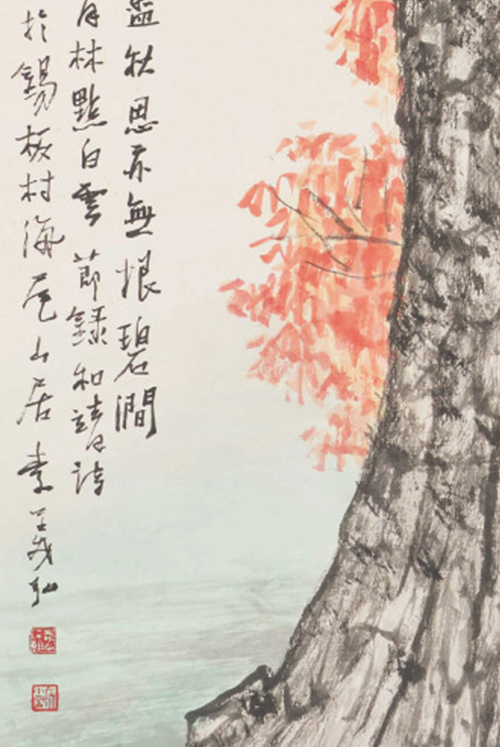 盡秋思亦無垠碧澗
青林點白雲 節錄和靖詩
於錫板村海尾山居 李義弘